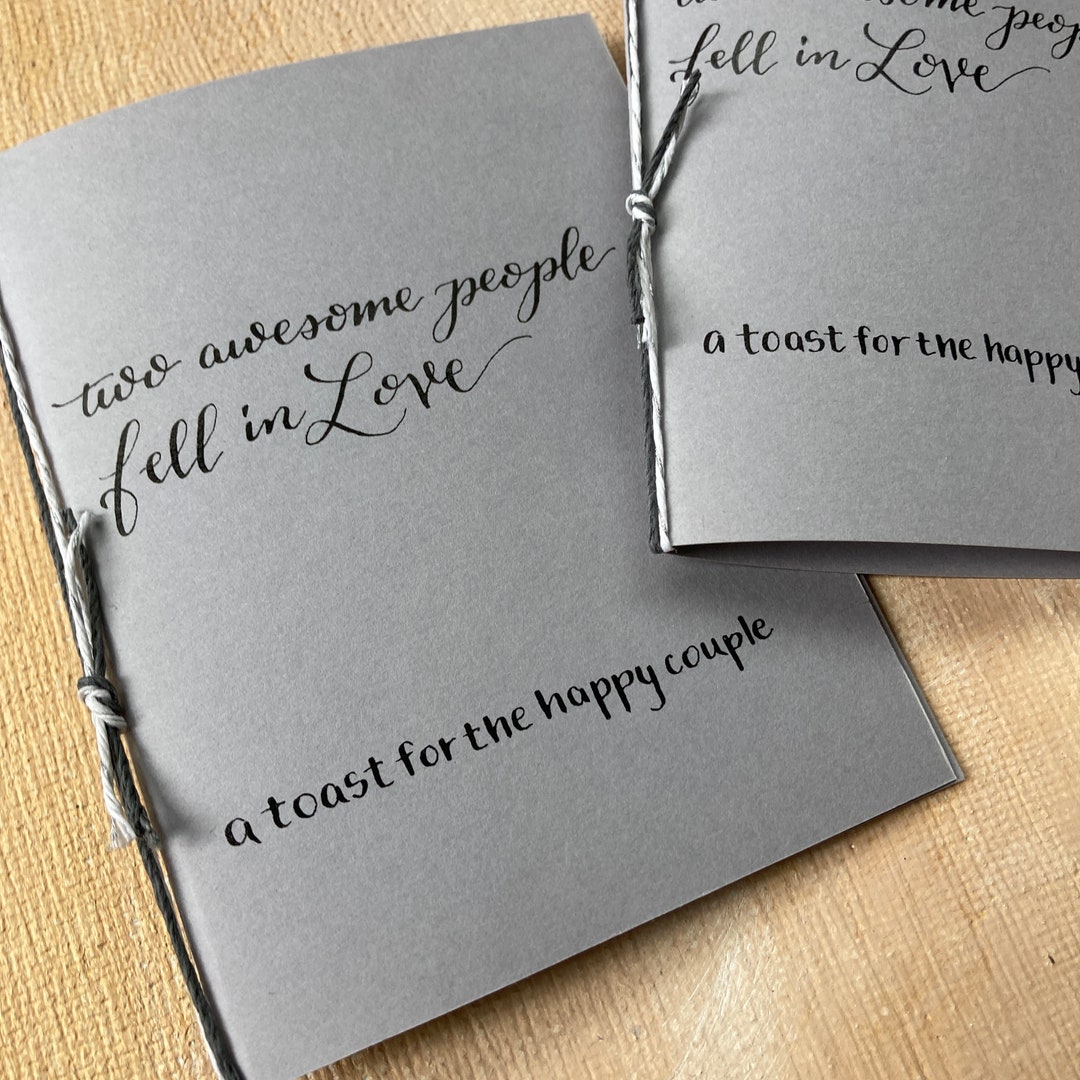 two awesome people
fell in Love
a toast for the happy couple
fell in Love
a toast for the happy